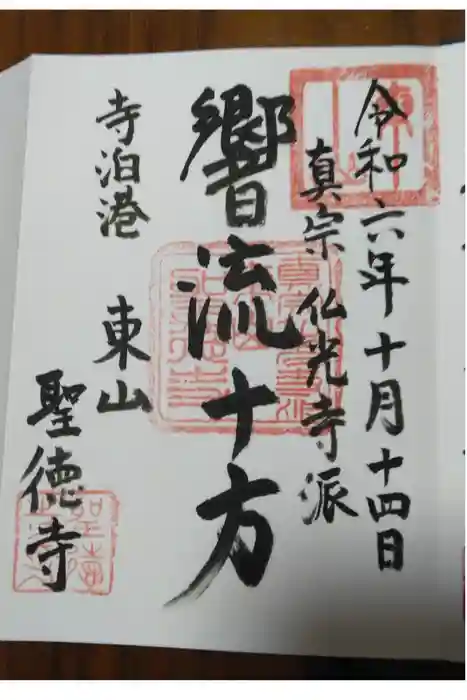 令和六年十月十四日
真宗仏光寺派
響流十方
寺泊港 東山
聖徳寺
東山